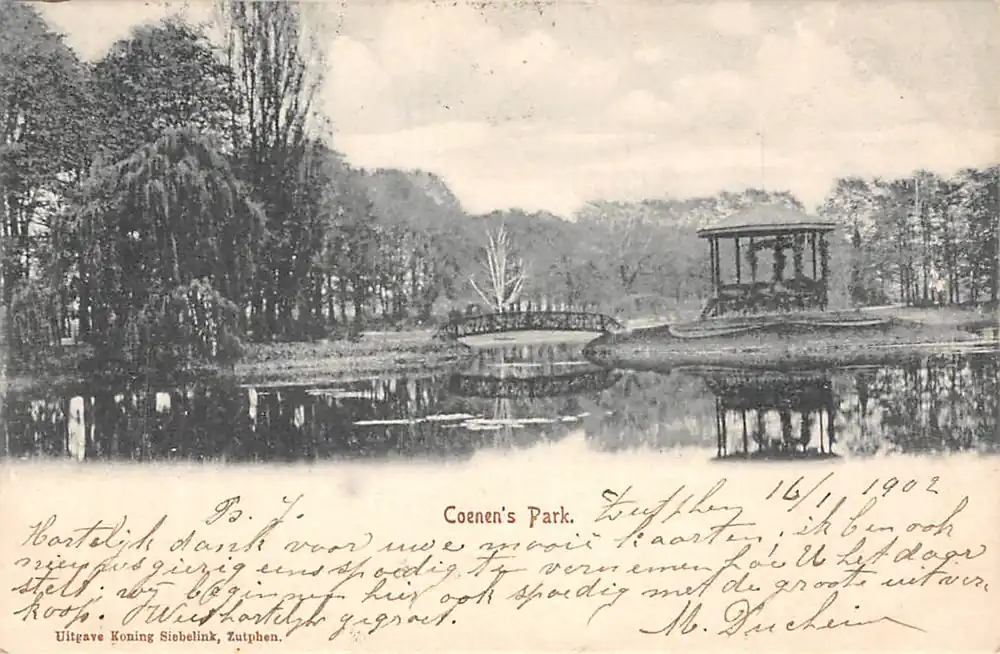 Coenen's Park.
Zutphen 16/1 1902
B. J.
Hartelijk dank voor uwe mooie kaarten, ik ben ook
nieuwsgierig eens spoedig te vernemen hoe U het daar
stelt; wij beginnen hier ook spoedig met de groote uitver-
koop. Wees hartelijk gegroet.
Uitgave Koning Siebelink, Zutphen.